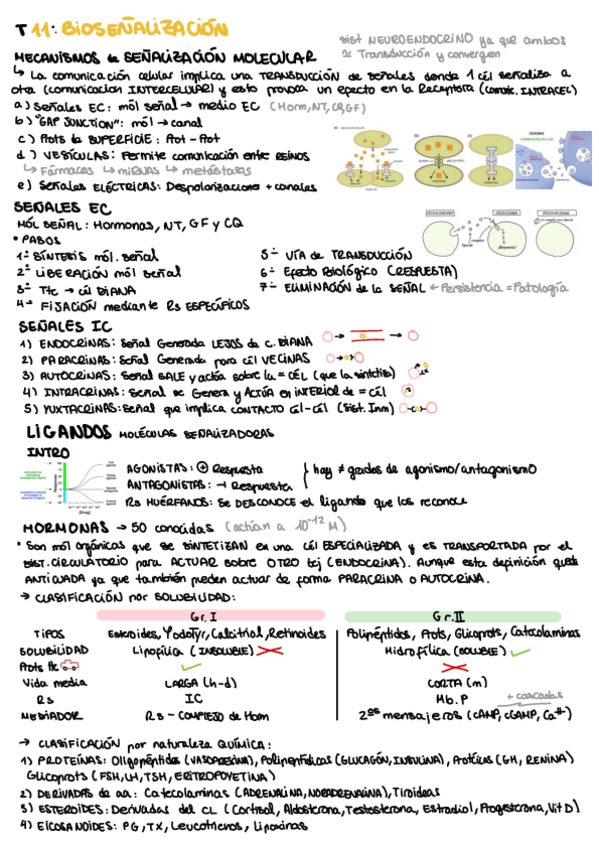 T 11: BIOSEÑALIZACIÓN
sist NEUROENDOCRINO ya que ambos
≃ Transducción y convergen
MECANISMOS de SEÑALIZACIÓN MOLECULAR
↳ La comunicación celular implica una TRANSDUCCIÓN de señales donde 1 cél señaliza a
otra (comunicación INTERCELULAR) y esto provoca un efecto en la Receptora (comic. INTRACEL)
a) Señales EC: mól señal → medio EC (Horm, NT, CQ, GF)
b) "GAP JUNCTION": mól → canal
c) Prots de SUPERFICIE: Prot - Prot
d) VESÍCULAS: Permite comunicación entre REINOS
↳ Fármacos ↳ miRNAs ↳ metástasis
e) Señales ELÉCTRICAS: Despolarizaciones + canales
SEÑALES EC
MÓL SEÑAL: Hormonas, NT, GF y CQ
• PASOS
1º SÍNTESIS mól. señal
2º LIBERACIÓN mól señal
3º Ttc → cél DIANA
4º FIJACIÓN mediante Rs ESPECÍFICOS
5º VÍA de TRANSDUCCIÓN
6º Efecto Biológico (RESPUESTA)
7º ELIMINACIÓN de la SEÑAL ← Persistencia = Patología
SEÑALES IC
1) ENDOCRINAS: Señal Generada LEJOS de c. DIANA
2) PARACRINAS: Señal Generada para cél VECINAS
3) AUTOCRINAS: Señal SALE y actúa sobre la = CÉL (que la sintetiza)
4) INTRACRINAS: Señal se Genera y ACTÚA en INTERIOR de = cél
5) YUXTACRINAS: Señal que implica CONTACTO cél-cél (Sist. Inm)
LIGANDOS MOLÉCULAS SEÑALIZADORAS
INTRO
AGONISTAS: ⊕ Respuesta
ANTAGONISTAS: ⊣ Respuesta
hay ≠ grados de agonismo/antagonismo
Rs HUÉRFANOS: Se DESCONOCE el ligando que los reconoce
HORMONAS → 50 conocidas (actúan a 10⁻¹² M)
• Son mól orgánicas que se SINTETIZAN en una cél ESPECIALIZADA y es TRANSPORTADA por el
SIST. CIRCULATORIO para ACTUAR sobre OTRO tej (ENDOCRINA). Aunque esta definición queda
ANTICUADA ya que también pueden actuar de forma PARACRINA o AUTOCRINA.
→ CLASIFICACIÓN por SOLUBILIDAD:
Gr. I Gr. II
TIPOS Esteroides, Yodotyr, Calcitriol, Retinoides Polipéptidos, Prots, Glicoprots, Catecolaminas
SOLUBILIDAD Lipofílica (INSOLUBLE) Hidrofílica (SOLUBLE)
Prots ttc
Vida media LARGA (h-d) CORTA (m)
Rs IC Mb. P + cascadas
MEDIADOR Rs - COMPLEJO de Horm 2ºs mensajeros (cAMP, cGMP, Ca²⁺)
→ CLASIFICACIÓN por naturaleza QUÍMICA:
1) PROTEÍNAS: Oligopéptidos (VASOPRESINA), Polipeptídicas (GLUCAGÓN, INSULINA), Proteicas (GH, RENINA)
Glicoprots (FSH, LH, TSH, ERITROPOYETINA)
2) DERIVADAS de aa: Catecolaminas (ADRENALINA, NORADRENALINA), Tiroideas
3) ESTEROIDES: Derivadas del CL (Cortisol, Aldosterona, Testosterona, Estradiol, Progesterona, Vit D)
4) EICOSANOIDES: PG, TX, Leucotrienos, Lipoxinas